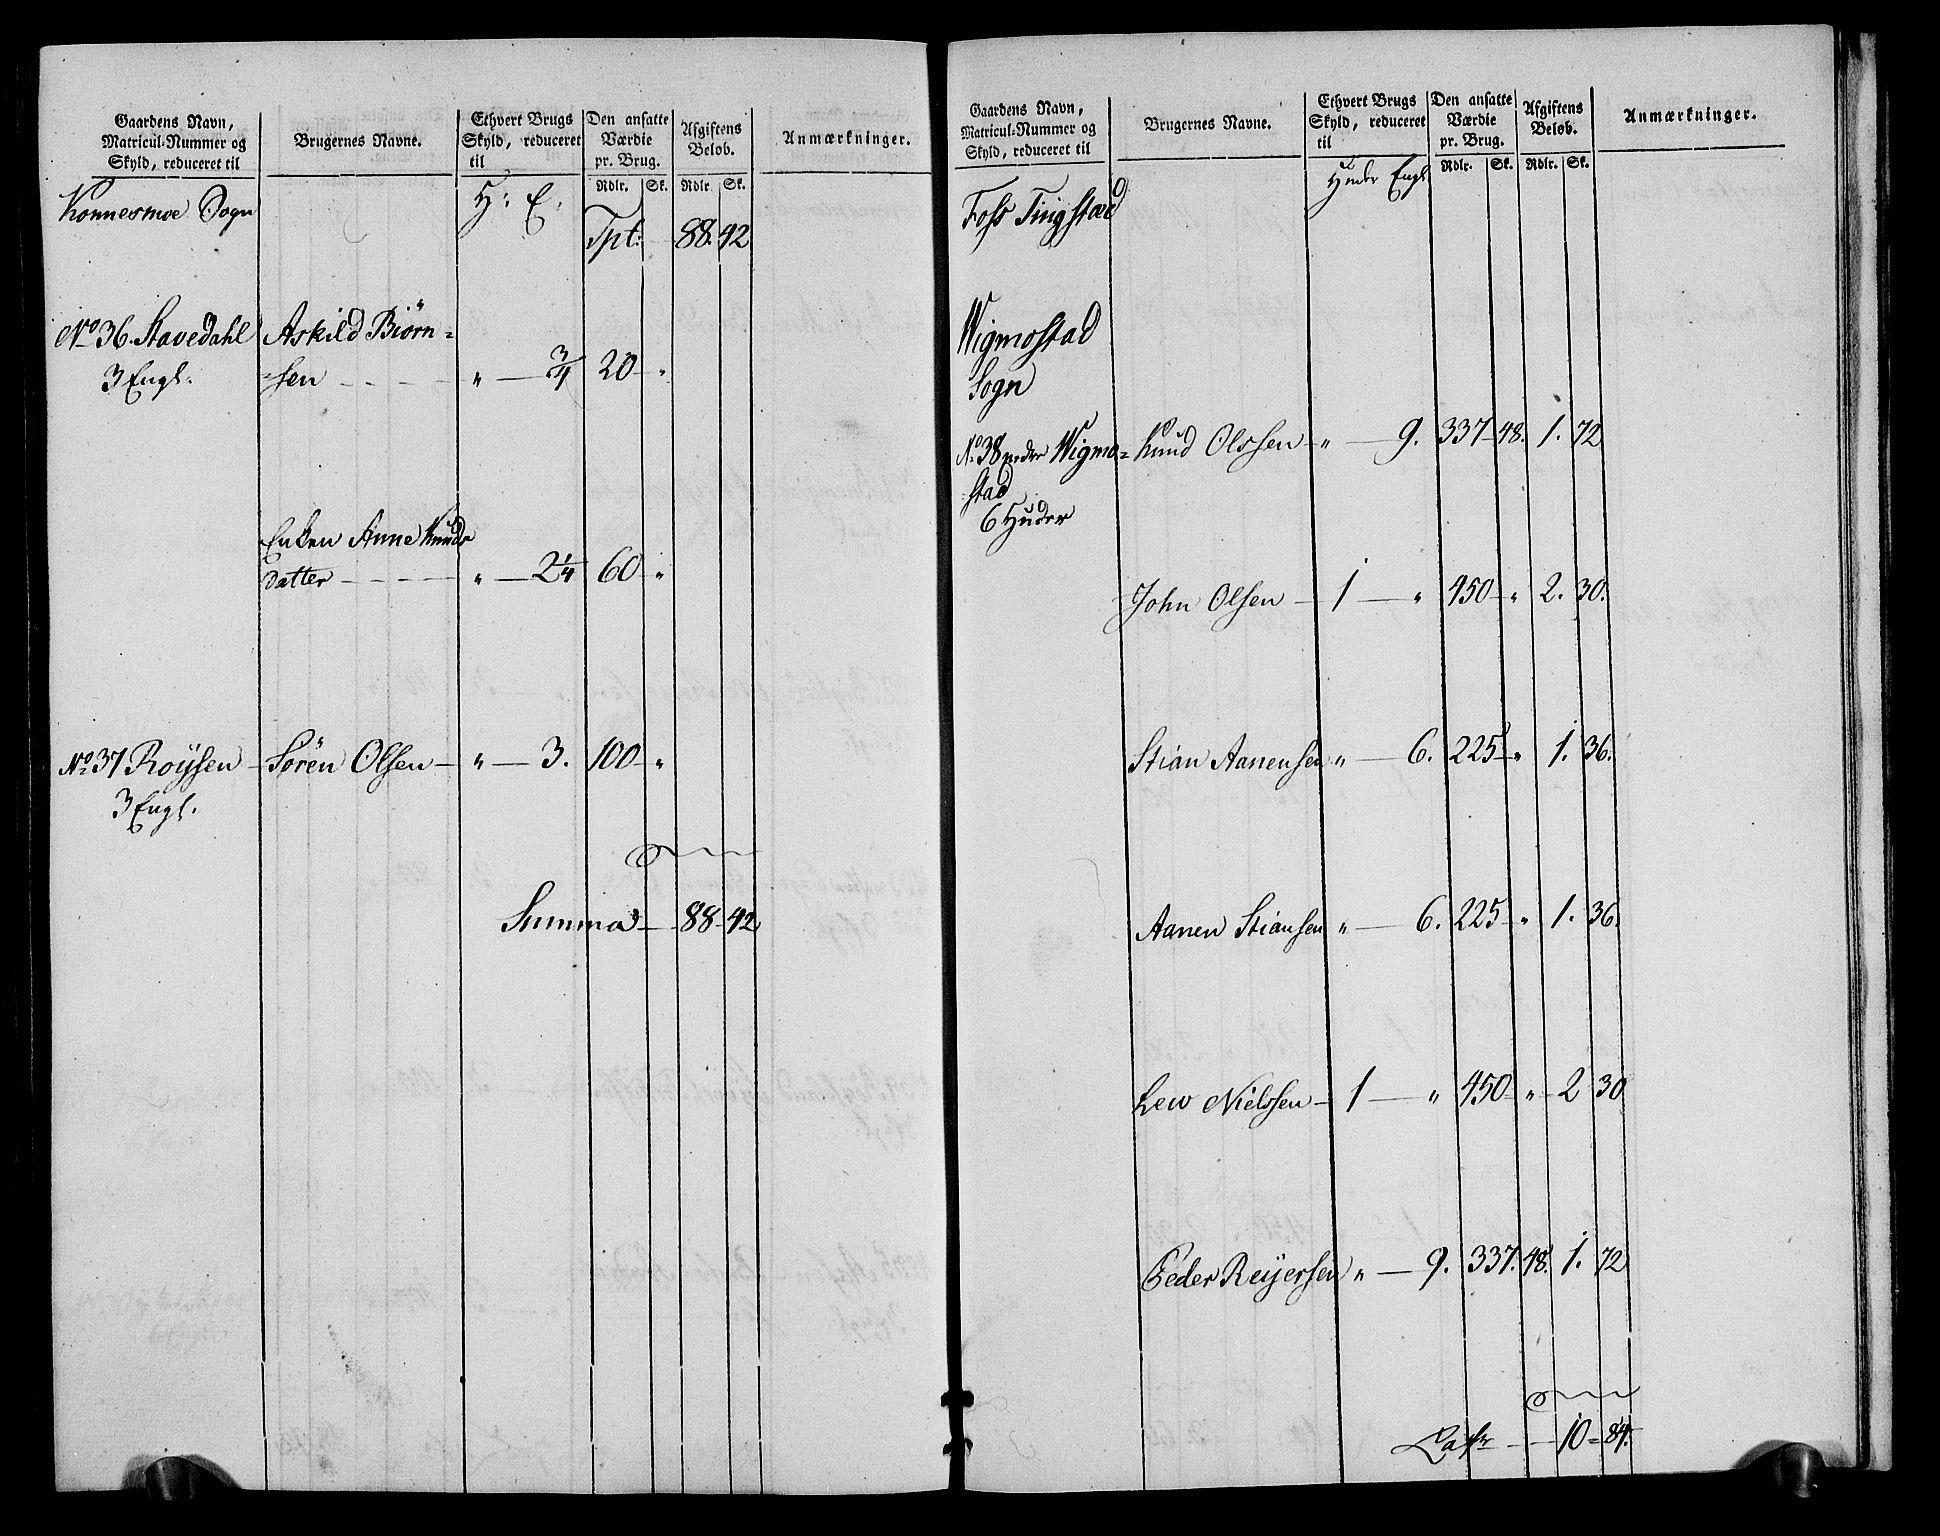 Gaardens Navn,
Matricul-Nummer og
Skyld, reduceret til
Brugernes Navne.
Ethvert Brugs
Skyld, reduceret
til
Den ansatte
Værdie
pr. Brug.
Afgiftens
Beløb.
Anmærkninger.
Rdlr. Sk. Rdlr. Sk.
Konnesmoe Sogn
H: E:
Tpt: 88. 42
No 36. Stavedahl Askild Biörn=
3 Engl. =sen - - - " — 3/4 20 - "
Enken Anne Knuds
datter - - - - " — 2 1/4 60 "
No 37 Roÿsen - Sören Olsen - " — 3. 100 "
3 Engl.
Summa - 88 - 42
Gaardens Navn,
Matricul-Nummer og
Skyld, reduceret til
Brugernes Navne.
Ethvert Brugs
Skyld, reduceret
til
Den ansatte
Værdie
pr. Brug.
Afgiftens
Beløb.
Anmærkninger.
Rdlr. Sk. Rdlr. Sk.
Huder Engl
Foss Tingstæd
Wigmostad
Sogn
No 38 Wigmo= Knud Olssen - " — 9. 337 - 48. 1. 72
=stad
6 Huder
John Olsen - 1 — " 450 - " 2. 30.
Stian Aanensen " — 6. 225 - " 1. 36.
Aanen Stiansen " — 6. 225 - " 1. 36.
Lew Nielssen - 1 — " 450 - " 2 30
Peder Reÿersen " — 9. 337. 48. 1. 72
Latr - - 10 = 84.